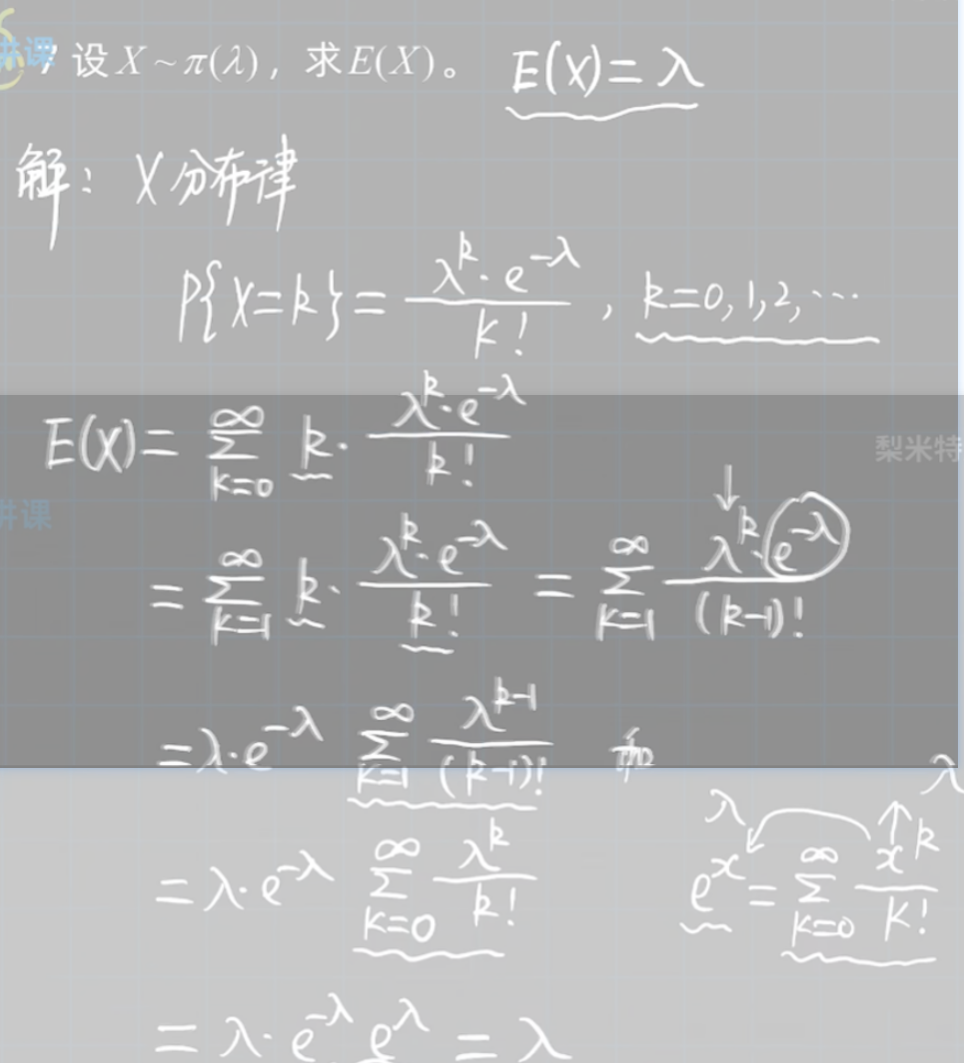 讲课
设 X ~ π(λ)，求 E(X)。 E(X) = λ
解：X分布律
P{X=k} = \frac{λ^k · e^{-λ}}{k!}, k=0,1,2,⋯
E(X) = \sum_{k=0}^{∞} k · \frac{λ^k · e^{-λ}}{k!}
梨米特
讲课
= \sum_{k=1}^{∞} k · \frac{λ^k · e^{-λ}}{k!} = \sum_{k=1}^{∞} \frac{λ^k · e^{-λ}}{(k-1)!}
= λ · e^{-λ} \sum_{k=1}^{∞} \frac{λ^{k-1}}{(k-1)!} 和
= λ · e^{-λ} \sum_{k=0}^{∞} \frac{λ^k}{k!}
λ λ
e^x = \sum_{k=0}^{∞} \frac{x^k}{k!}
= λ · e^{-λ} e^{λ} = λ